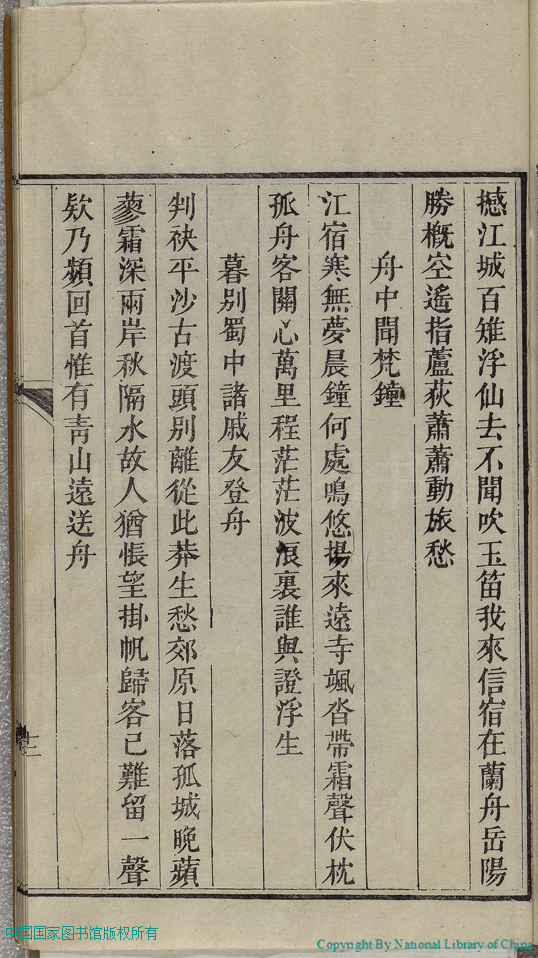 撼江城百雉浮仙去不聞吹玉笛我來信宿在蘭舟岳陽
勝概空遙指蘆荻蕭蕭動旅愁
舟中聞梵鐘
江宿寒無夢晨鐘何處鳴悠揚來遠寺颯沓帶霜聲伏枕
孤舟客關心萬里程茫茫波浪裏誰與證浮生
暮別蜀中諸戚友登舟
判袂平沙古渡頭別離從此莽生愁郊原日落孤城晚蘋
蓼霜深兩岸秋隔水故人猶悵望掛帆歸客已難留一聲
欸乃頻回首惟有靑山遠送舟
十二
中国国家图书馆版权所有
Copyright By National Library of China